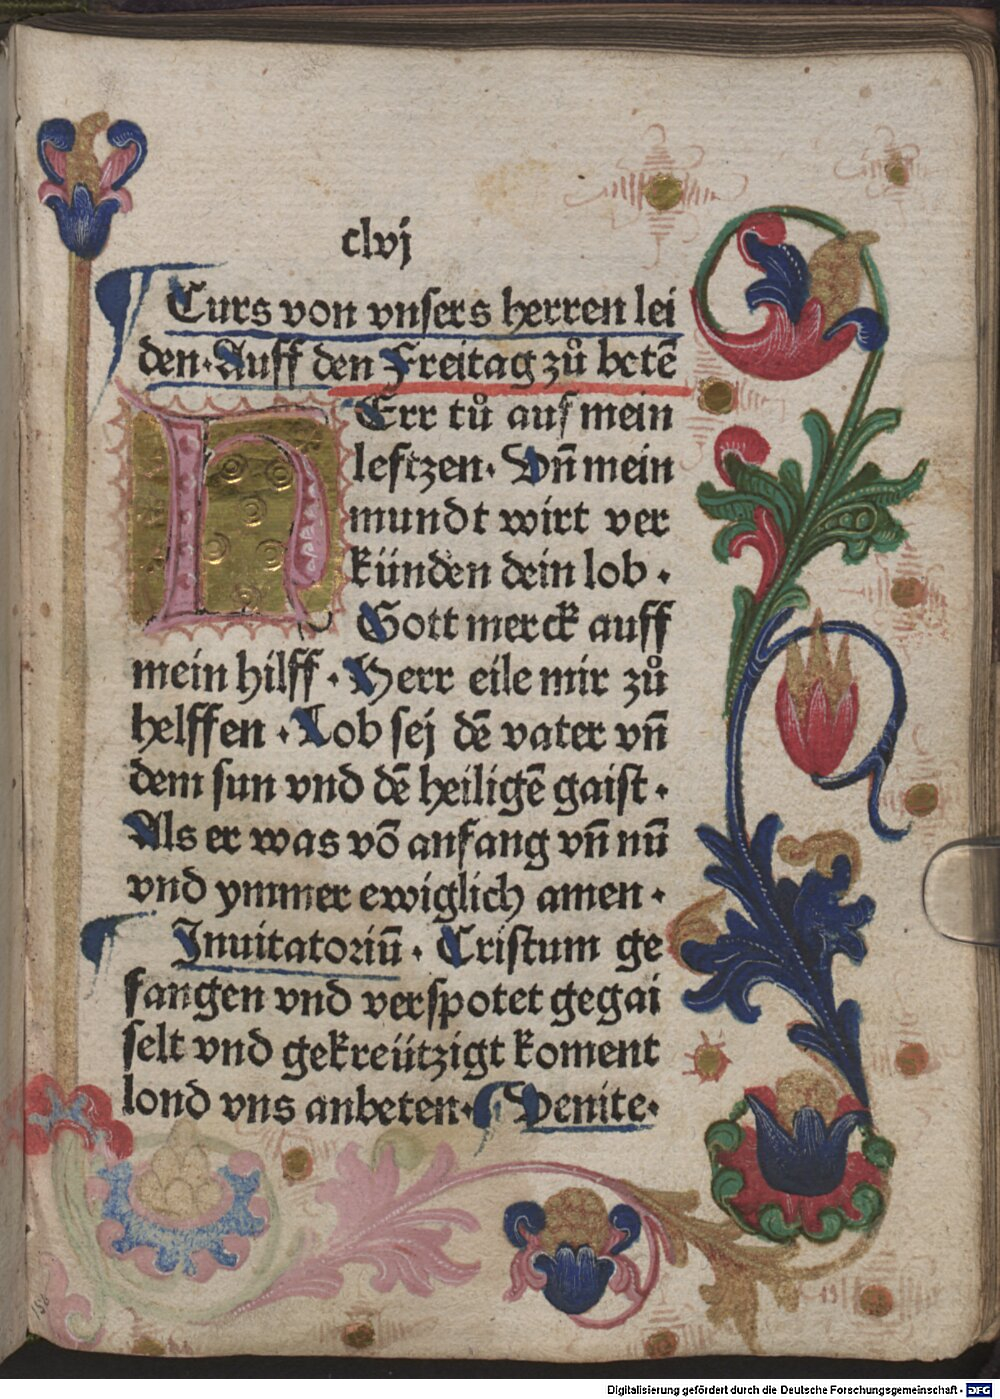 clvj
Curs von vnsers herren lei
den. Auff den Freitag zů betē
HErr tů auf mein
lefftzen. Vn̄ mein
mundt wirt ver
künden dein lob.
Gott merck auff
mein hilff. Herr eile mir zů
helffen. Lob sej dē vater vn̄
dem sun vnd dē heiligē gaist.
Als er was vō anfang vn̄ nū
vnd ymmer ewiglich amen.
Inuitatoriū. Cristum ge
fangen vnd verspotet gegai
selt vnd gekreützigt koment
lond vns anbeten. Venite.
156
Digitalisierung gefördert durch die Deutsche Forschungsgemeinschaft - DFG